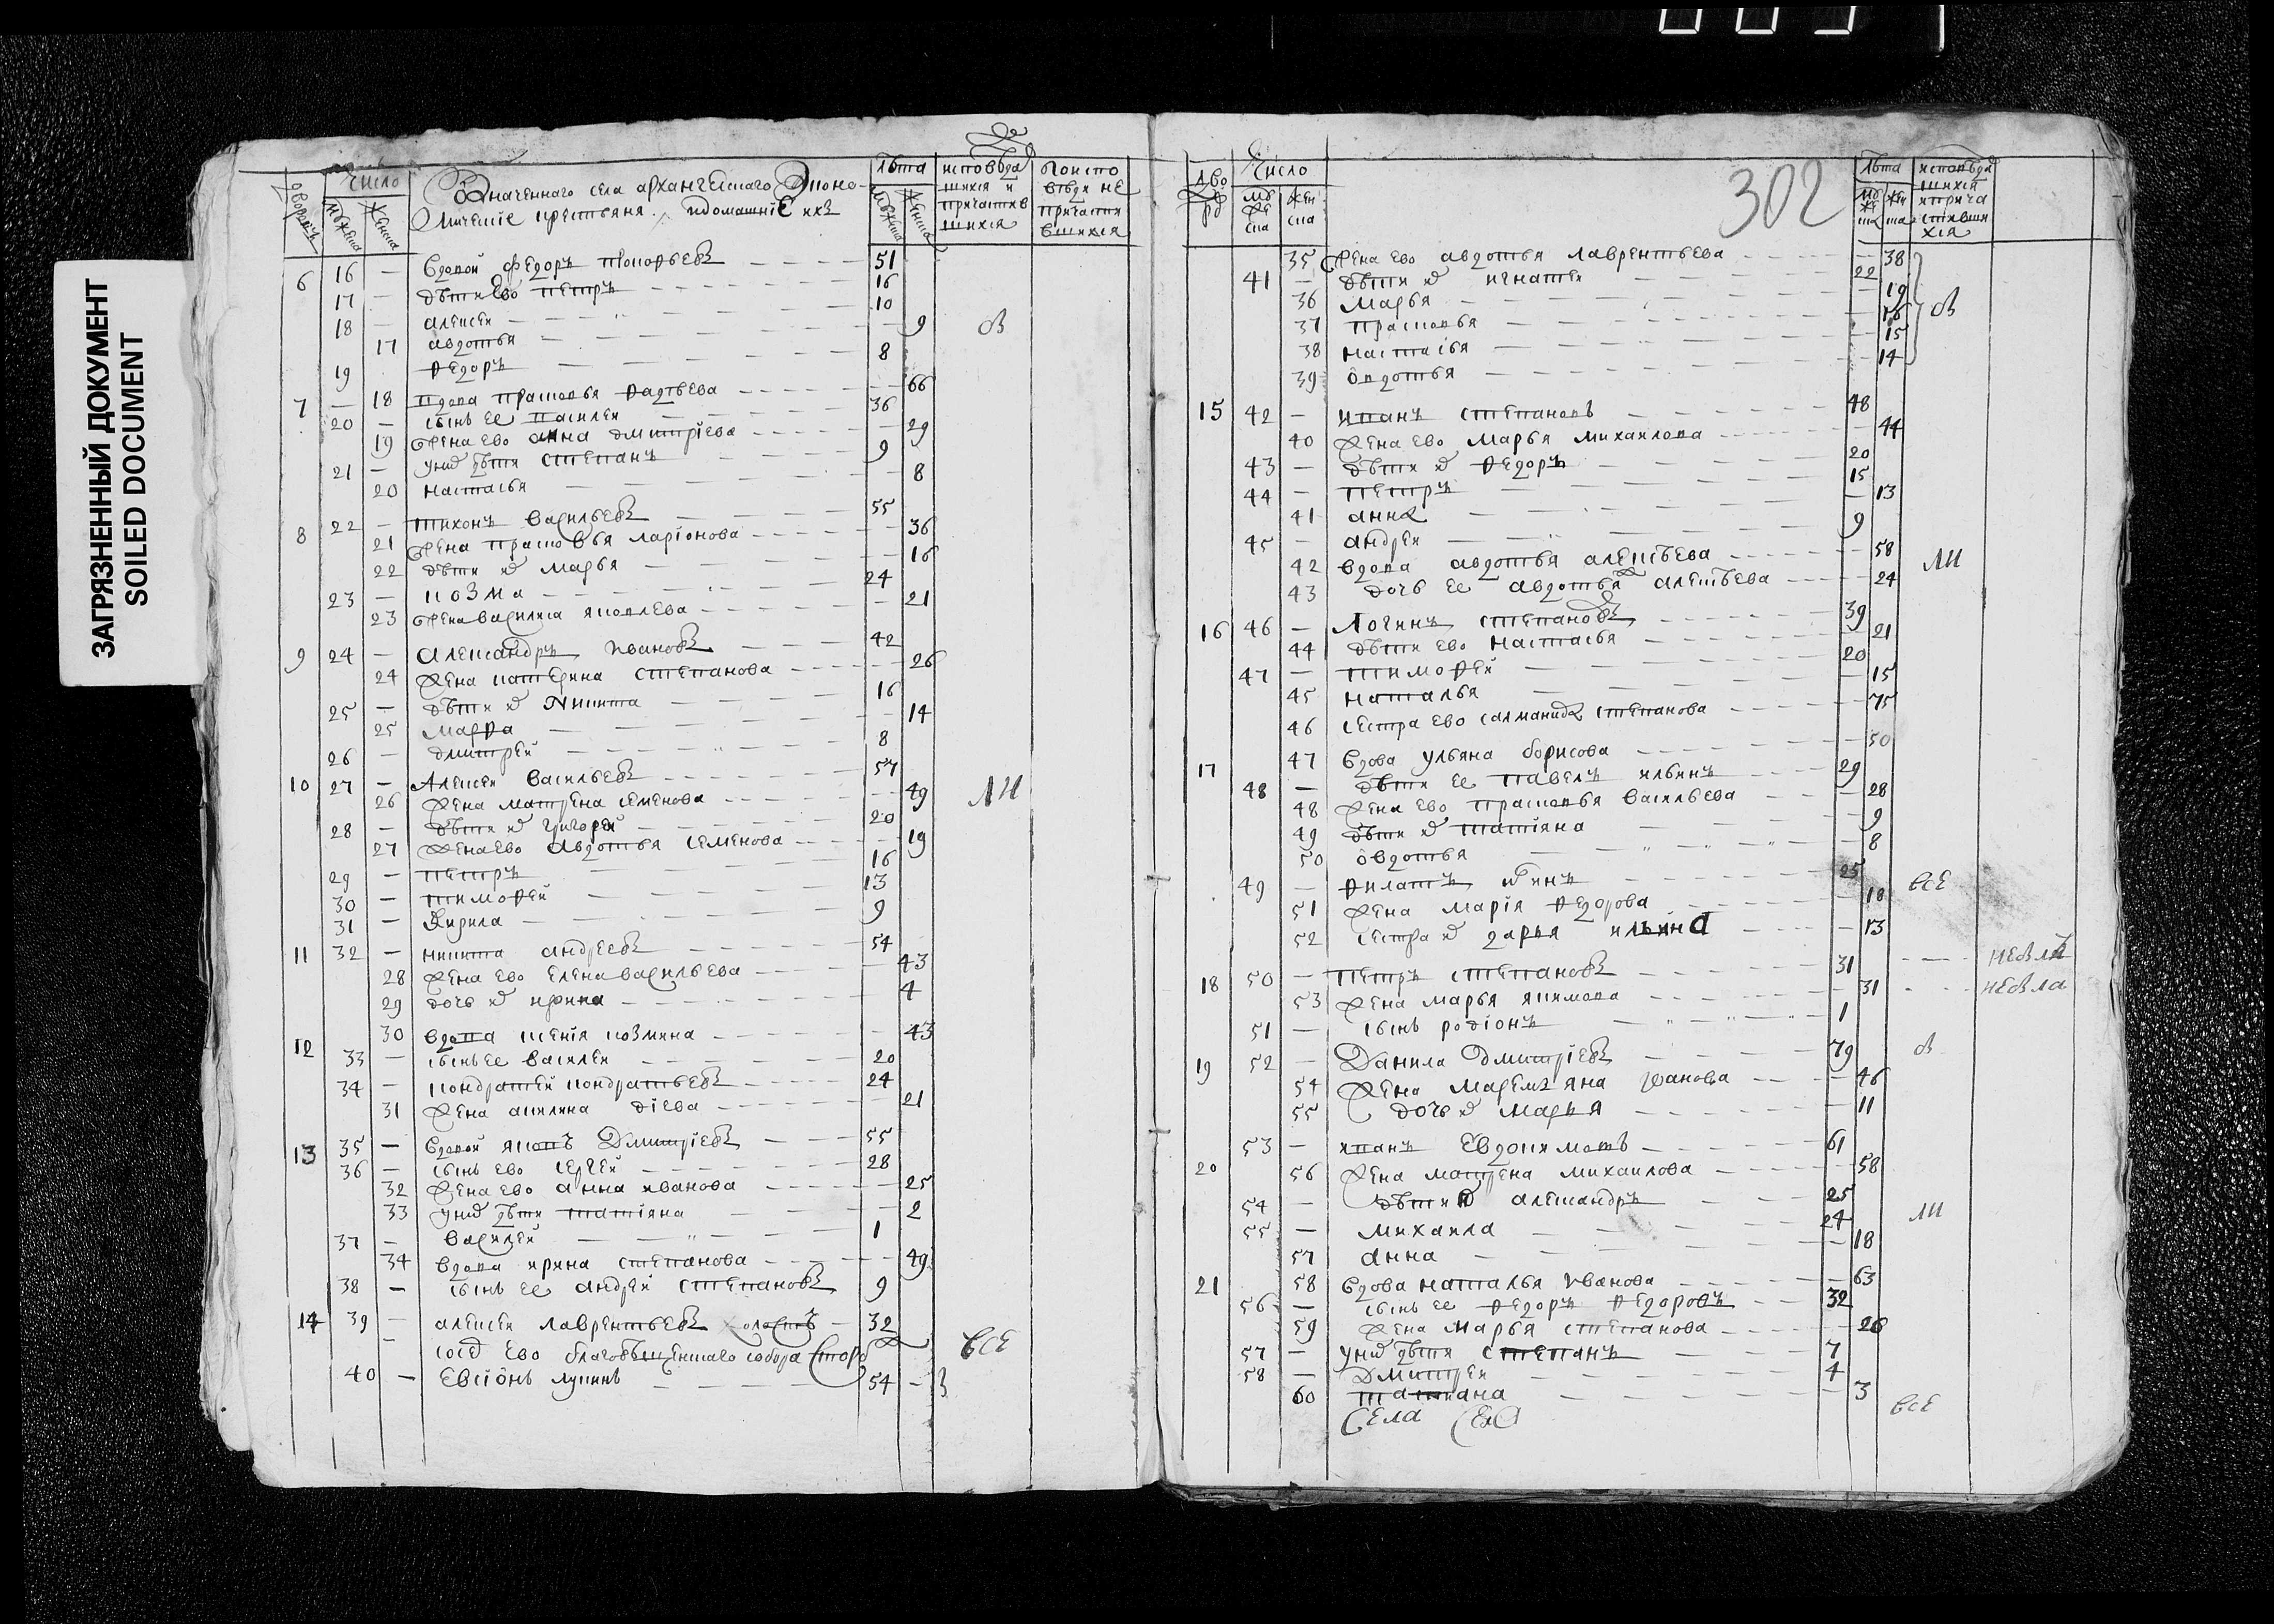 ЗАГРЯЗНЕННЫЙ ДОКУМЕНТ
SOILED DOCUMENT
дворовъ
Число
мужеска
женска
Означеннаго села архангелскаго Эконо-
мические крестьяня и домашние ихъ
лѣта
мужеска
женска
исповѣда
шихся и
причастив
шихся
по испо
вѣди не
причасти
вшихся
6 16 — вдовой федоръ прокофьевъ 51
17 — дѣти ево петръ 16
18 — алексеи 10
17 авдотья 9 об
19 федоръ 8
7 — 18 вдова прасковья фадѣева 66
20 — сынъ ее василеи 36
19 жена ево анна дмитріева 29
21 — у них дѣти степанъ 9
20 настасья 8
8 22 — тихонъ васильевъ 55
21 жена прасковья ларіонова 36
22 дѣти их марья 16
23 — козма 24
23 жена василиса яковлева 21
9 24 — александръ ивановъ 42
24 жена катерина степанова 26
25 — дѣти их никита 16
25 марфа 14
26 — дмитреи 8
10 27 — алексеи васильевъ 57
26 жена матрена семенова 49 ли
28 — дѣти их григореи 20
27 жена ево авдотья семенова 19
29 — петръ 16
30 — тимофеи 13
31 — кирила 9
11 32 — никита андреевъ 54
28 жена ево елена васильева 43
29 дочь их ирина 4
12 30 вдова ксенія козмина 43
33 — сынъ ее василеи 20
34 — кондратеи кондратьевъ 24
31 жена акилина діева 21
13 35 — вдовой яковъ дмитріевъ 55
36 — сынъ ево сергеи 28
32 жена ево анна иванова 25
33 у них дѣти татіяна 2
37 — василеи 1
34 вдова ирина степанова 49
38 — сынъ ее андреи степановъ 9
14 39 — алексеи лаврентьевъ холостъ 32
ево благовѣщенскаго собора сторо все
40 — евсіонъ лукинъ 54
302
дво
ръ
Число
му
же
ска
жен
ска
лѣта
му
же
ска
жен
ска
исповѣда
шихся
и прича
стивши
хся
35 жена ево авдотья лаврентьева 38
41 — дѣти их игнатеи 22
36 марья 19 об
37 прасковья 16
38 настасья 15
39 овдотья 14
15 42 — иванъ степановъ 48
40 жена ево марья михаилова 44
43 — дѣти их федоръ 20
44 — петръ 15
41 анна 13
45 — андреи 9
42 вдова авдотья алексѣева 58 ли
43 дочь ее авдотья алексѣева 24
16 46 — логинъ степановъ 39
44 дѣти ево настасья 21
47 — тимофеи 20
45 наталья 15
46 сестра ево салманида степанова 75
17 47 вдова ульяна борисова 50
48 — дѣти ее павелъ ильинъ 29
48 жена ево прасковья васильева 28
49 дѣти их татіяна 9
50 овдотья 8
49 — филатъ ильинъ 25 все
51 жена марія федорова 18
52 сестра их дарья ильина 13
18 50 — петръ степановъ 31 небыли
53 жена марья якимова 31 небыла
51 — сынъ родіонъ 1
19 52 — данила дмитріевъ 79 об
54 жена маремьяна иванова 46
55 дочь их марья 11
20 53 — иванъ евдокимовъ 61
56 жена матрена михаилова 58
54 — дѣти их александръ 25
55 — михаила 24 ли
57 анна 18
21 58 вдова наталья иванова 63
56 — сынъ ее федоръ федоровъ 32
59 жена марья степанова 26
57 — у них дѣти степанъ 7
58 — дмитреи 4
60 татиана 3 все
села